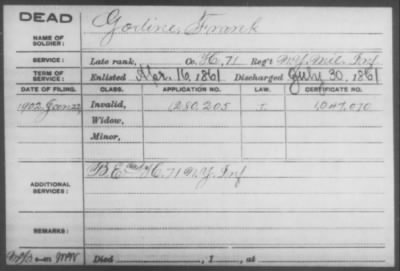 DEAD
NAME OF SOLDIER: Godine, Frank
SERVICE: Late rank, Co. K, 71 Reg't N.Y. Mil. Inf
TERM OF SERVICE: Enlisted Apr. 16, 1861 Discharged July 30, 1861
DATE OF FILING. CLASS. APPLICATION NO. LAW. CERTIFICATE NO.
1902 Jan 22 Invalid, 1,280,205 1,047,070
Widow,
Minor,
ADDITIONAL SERVICES: 71 N.Y. Inf
REMARKS:
Died , 1 , at